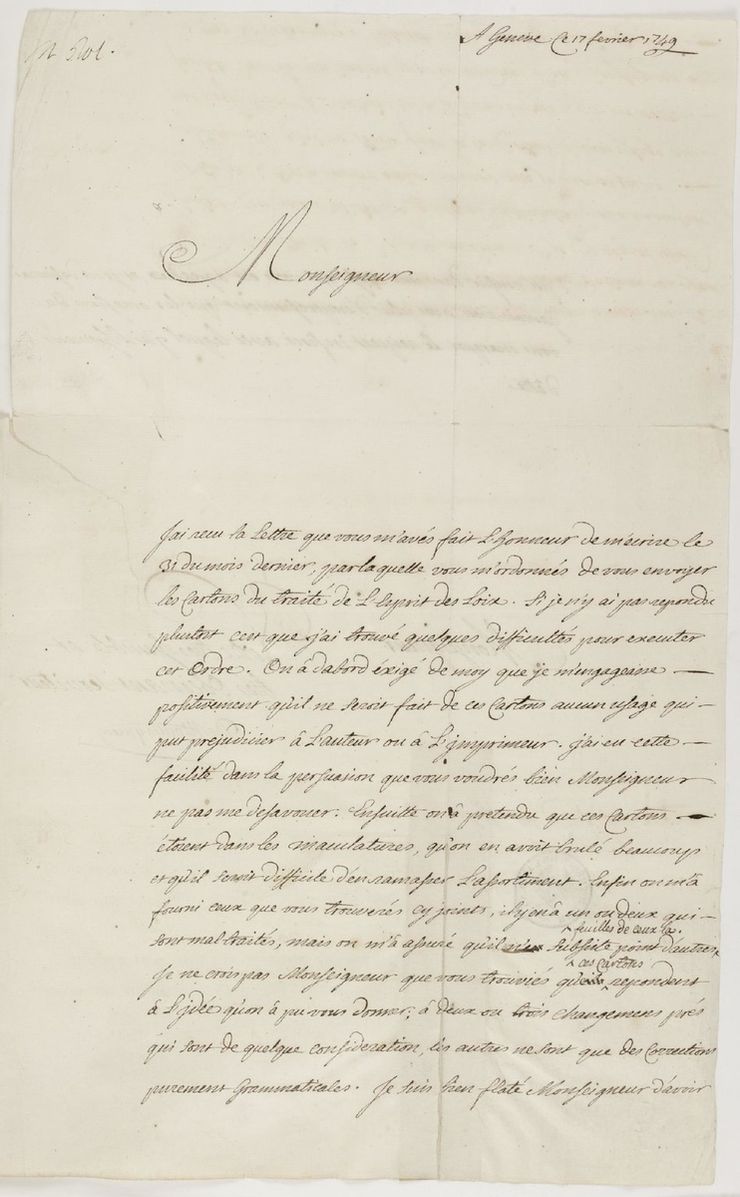 A Geneve Ce 17 fevrier 1749
Monseigneur
J'ai recu la Lettre que vous m'avés fait L'honneur de m'ecrire le
31 du mois dernier, par laquelle vous m'ordonnés de vous envoyer
les Cartons du traité de L'Esprit des Loix. Si je n'y ai pas repondu
plustost c'est que j'ai trouvé quelques difficultés pour executer
cet Ordre. On â d'abord éxigé de moy que je m'engageasse
positivement qu'il ne seroit fait de ces Cartons aucun usage qui
put prejudicier â L'auteur ou â L'jmprimeur. j'ai eu cette
facilité dans la persuasion que vous voudrés bien Monseigneur
ne pas me desavouer. Ensuitte on â pretendu que ces Cartons
étoient dans les maculatures, qu'on en avoit brulé beaucoup
et qu'il seroit difficile d'en ramasser L'assortiment. Enfin on m'a
fourni ceux que vous trouverés cy joints, il y en â un ou deux qui
sont mal traités, mais on m'â assuré qu'il ne subsiste point d'autres feuilles de ceux la.
Je ne crois pas Monseigneur que vous trouviés que ces Cartons repondent
â L'jdée qu'on â pu vous donner; â deux ou trois changemens prés
qui sont de quelque consideration, les autres ne sont que des Corrections
purement Grammaticales. Je suis bien flaté Monseigneur d'avoir